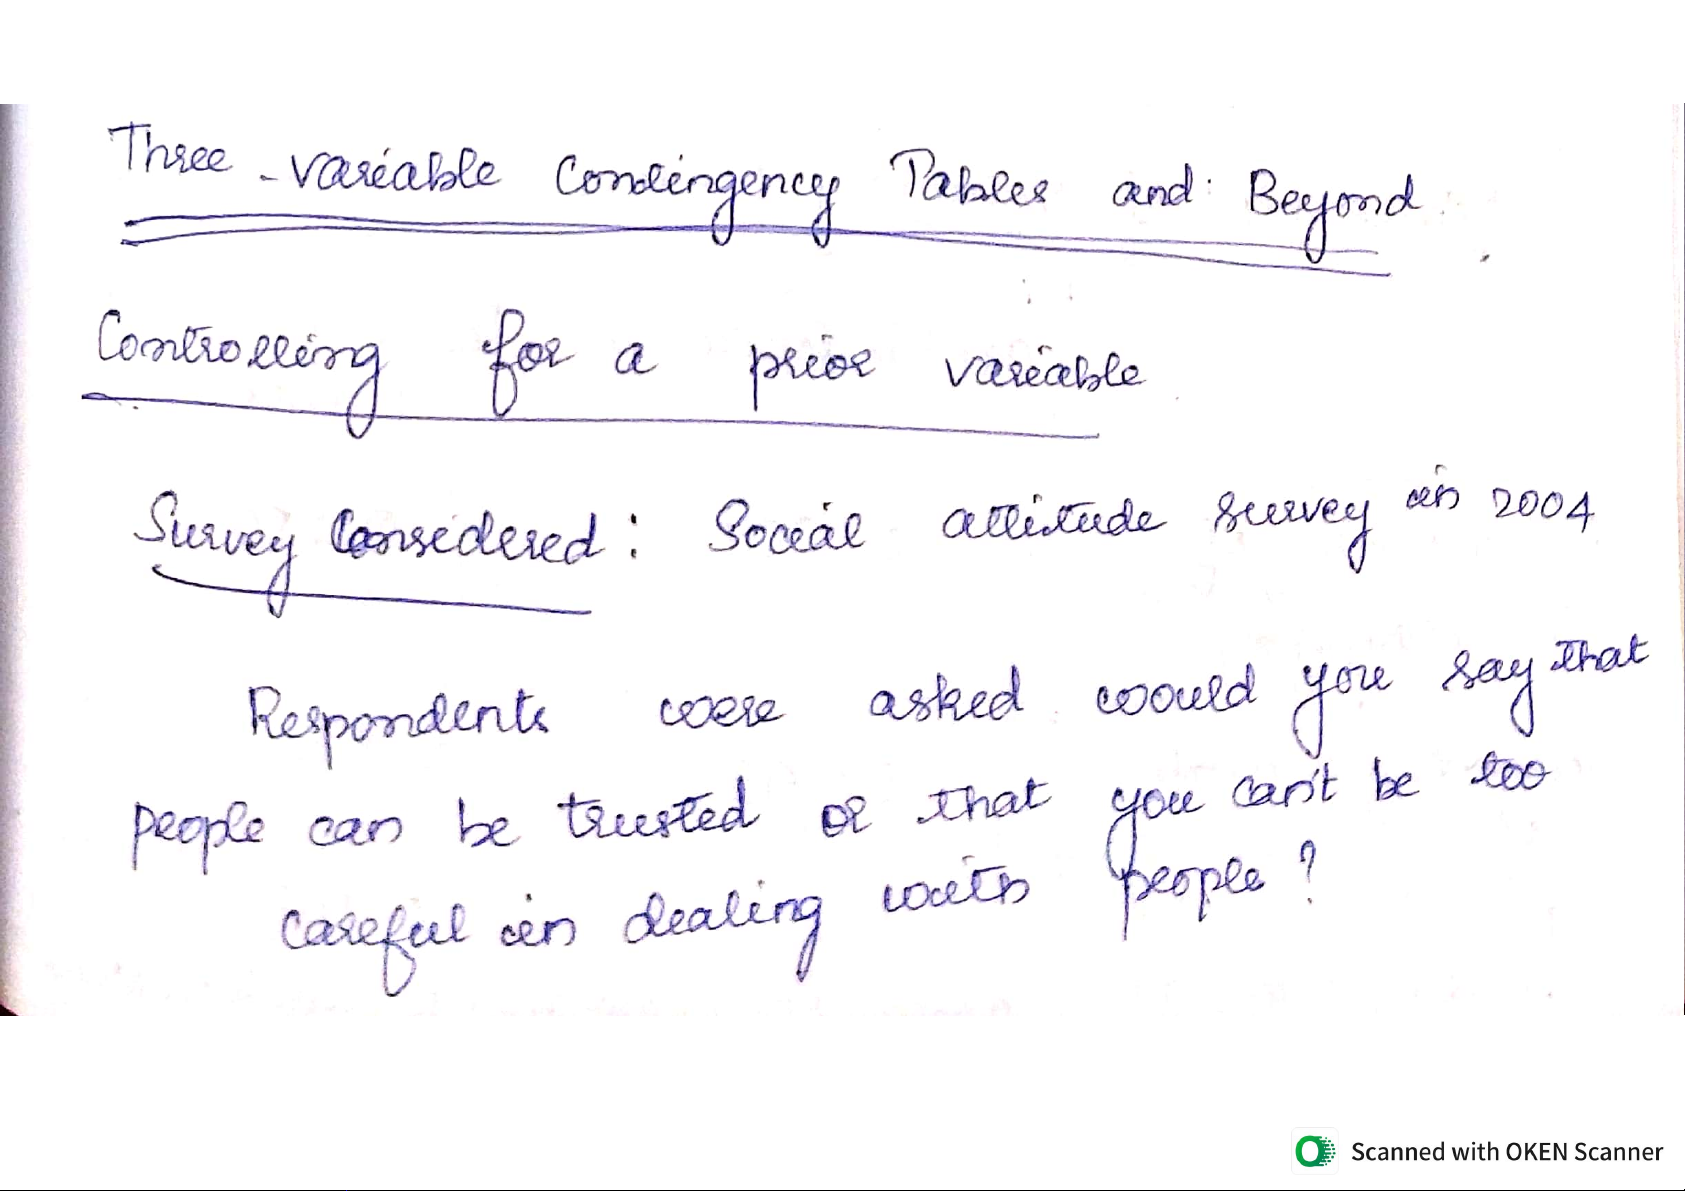 Three-variable Contingency Tables and Beyond
Controlling for a prior variable
Survey Considered: Social attitude survey in 2004
Respondents were asked would you say that
people can be trusted or that you can't be too
careful in dealing with people?
Scanned with OKEN Scanner